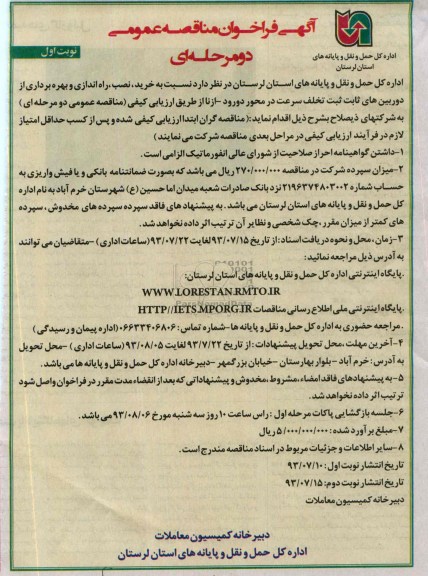 آگهی فراخوان مناقصه عمومی
دو مرحله‌ای
نوبت اول
اداره کل حمل و نقل و پایانه های
استان لرستان
اداره کل حمل و نقل و پایانه های استان لرستان در نظر دارد نسبت به خرید، نصب، راه اندازی و بهره برداری از
دوربین های ثابت ثبت تخلف سرعت در محور دورود - ازنا از طریق ارزیابی کیفی (مناقصه عمومی دو مرحله ای)
به شرکتهای ذیصلاح بشرح ذیل اقدام نماید:(مناقصه گران ابتدا ارزیابی کیفی شده و پس از کسب حداقل امتیاز
لازم در فرآیند ارزیابی کیفی در مراحل بعدی مناقصه شرکت می نمایند)
۱-داشتن گواهینامه احراز صلاحیت از شورای عالی انفورماتیک الزامی است.
۲-میزان سپرده شرکت در مناقصه ۲۷۰/۰۰۰/۰۰۰ ریال می باشد که بصورت ضمانتنامه بانکی و یا فیش واریزی به
حساب شماره ۲۱۹۶۳۷۴۸۰۳۰۰۲ نزد بانک صادرات شعبه میدان امام حسین (ع) شهرستان خرم آباد به نام اداره
کل حمل و نقل و پایانه های استان لرستان می باشد. به پیشنهادهای فاقد سپرده سپرده های مخدوش، سپرده
های کمتر از میزان مقرر، چک شخصی و نظایر آن ترتیب اثر داده نخواهد شد.
۳-زمان، محل و نحوه دریافت اسناد: از تاریخ ۹۳/۰۷/۱۵ لغایت ۹۳/۰۷/۲۲ (ساعات اداری) -متقاضیان می توانند
به آدرس ذیل مراجعه نمائید:
.پایگاه اینترنتی اداره کل حمل و نقل و پایانه های استان لرستان:
WWW.LORESTAN.RMTO.IR
.پایگاه اینترنتی ملی اطلاع رسانی مناقصات HTTP//IETS.MPORG.IR
.مراجعه حضوری به اداره کل حمل و نقل و پایانه ها -شماره تماس: ۰۶۶۳۳۴۰۶۸۰۶ (اداره پیمان و رسیدگی)
۴-آخرین مهلت، محل تحویل پیشنهادات: از تاریخ ۹۳/۷/۲۲ لغایت ۹۳/۰۸/۰۵ (ساعات اداری) -محل تحویل
به آدرس: خرم آباد -بلوار بهارستان -خیابان بزرگمهر -دبیرخانه اداره کل حمل و نقل و پایانه ها می باشد.
۵-به پیشنهادهای فاقد امضاء، مشروط، مخدوش و پیشنهاداتی که بعد از انقضاء مدت مقرر در فراخوان واصل شود
ترتیب اثر داده نخواهد شد.
۶-جلسه بازگشایی پاکات مرحله اول : راس ساعت ۱۰ روز سه شنبه مورخ ۹۳/۰۸/۰۶ می باشد.
۷-مبلغ برآورد شده: ۵/۰۰۰/۰۰۰/۰۰۰ ریال
۸-سایر اطلاعات و جزئیات مربوط در اسناد مناقصه مندرج است.
تاریخ انتشار نوبت اول: ۹۳/۰۷/۱۰
تاریخ انتشار نوبت دوم: ۹۳/۰۷/۱۵
دبیرخانه کمیسیون معاملات
دبیرخانه کمیسیون معاملات
اداره کل حمل و نقل و پایانه های استان لرستان